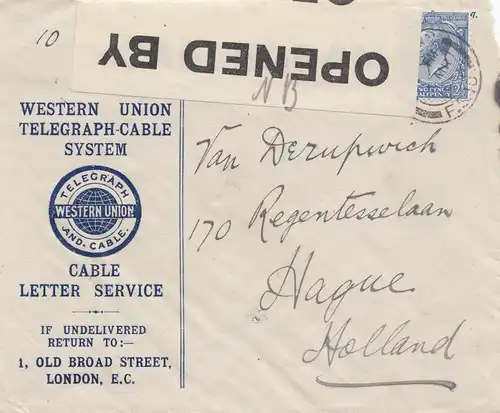 10
OPENED BY
N B
WESTERN UNION
TELEGRAPH-CABLE
SYSTEM
TELEGRAPH
WESTERN UNION
AND CABLE.
CABLE
LETTER SERVICE
IF UNDELIVERED
RETURN TO:—
1, OLD BROAD STREET,
LONDON, E.C.
Van Derupwich
170 Regentesselaan
Hague
Holland